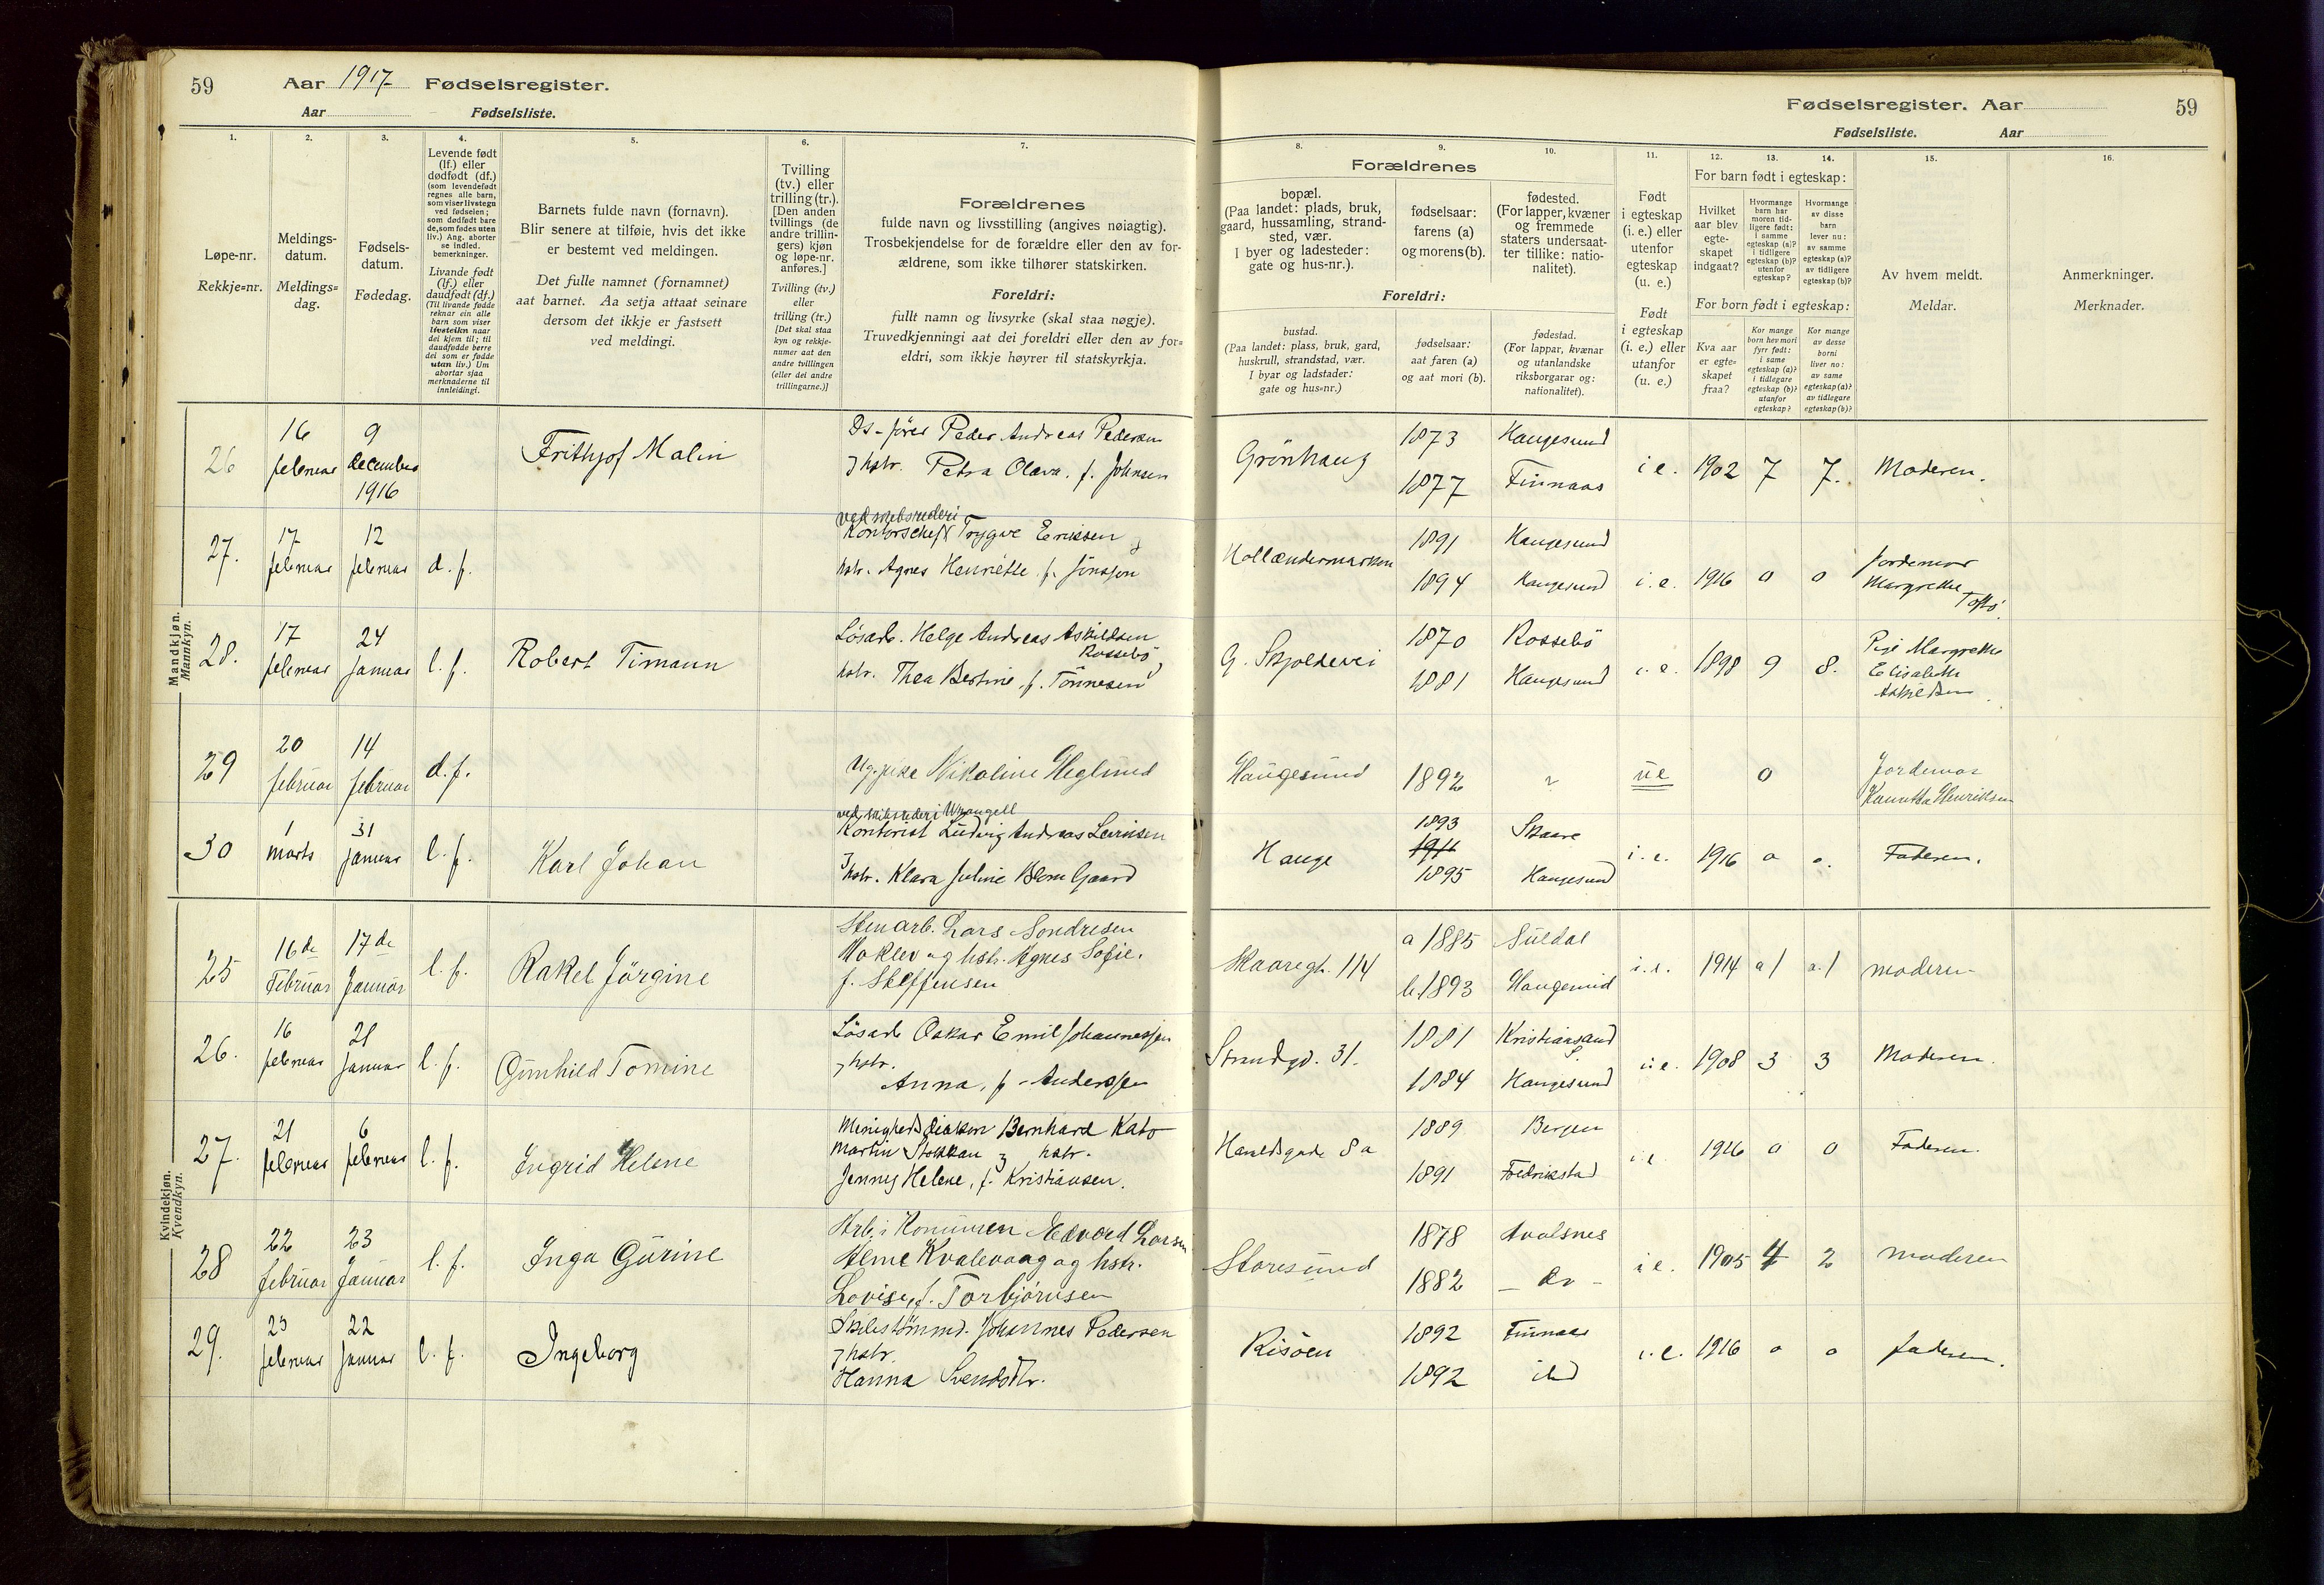 59
Aar 1917 Fødselsregister.
Aar Fødselsliste.
Fødselsregister. Aar
59
Fødselsliste. Aar
1.
Løpe-nr.
Rekkje=nr.
2.
Meldings-
datum.
Meldings=
dag.
3.
Fødsels-
datum.
Fødedag.
4.
Levende født
(lf.) eller
dødfødt (df.)
(som levendefødt
regnes alle barn,
som viser livstegn
ved fødselen;
som dødfødt bare
de, som fødes uten
liv.) Ang. aborter
se indled.
bemerkninger.
Livande født
(lf.) eller
daudfødt (df.)
(Til livande fødde
reknar ein alle
born som viser
livsteikn naar
dei kjem til; til
daudfødde berre
dei som er fødde
utan liv.) Um
abortar sjaa
merknaderne til
innleidingi.
5.
Barnets fulde navn (fornavn).
Blir senere at tilføie, hvis det ikke
er bestemt ved meldingen.
Det fulle namnet (fornamnet)
aat barnet. Aa setja attaat seinare
dersom det ikkje er fastsett
ved meldingi.
6.
Tvilling
(tv.) eller
trilling (tr.).
[Den anden
tvillings (de
andre trillin-
gers) kjøn
og løpe-nr.
anføres.]
Tvilling (tv.)
eller
trilling (tr.)
[Det skal staa
kyn og rekkje-
numer aat den
andre tvillingen
(eller dei andre
trillingarne.)]
7.
Forældrenes
fulde navn og livsstilling (angives nøiagtig).
Trosbekjendelse for de forældre eller den av for-
ældrene, som ikke tilhører statskirken.
Foreldri:
fullt namn og livsyrke (skal staa nøgje).
Truvedkjenningi aat dei foreldri eller den av for=
eldri, som ikkje høyrer til statskyrkja.
8.
Forældrenes
bopæl.
(Paa landet: plads, bruk,
gaard, hussamling, strand-
sted, vær.
I byer og ladesteder:
gate og hus-nr.).
Foreldri:
bustad.
(Paa landet: plass, bruk, gard,
huskrull, strandstad, vær.
I byar og ladstader:
gate og hus=nr.)
9.
fødselsaar:
farens (a)
og morens (b).
fødselsaar:
aat faren (a)
og aat mori (b).
10.
fødested.
(For lapper, kvæner
og fremmede
staters undersaat-
ter tillike: natio-
nalitet).
fødestad.
(For lappar, kvænar
og utanlandske
riksborgarar og:
nationalitet).
11.
Født
i egteskap
(i. e.) eller
utenfor
egteskap
(u. e.)
Født
i egteskap
(i. e.) eller
utanfor
(u. e.)
12. 13. 14.
For barn født i egteskap:
Hvilket
aar blev
egte-
skapet
indgaat?
Hvormange
barn har
moren tid-
ligere født:
i samme
egteskap (a)?
i tidligere
egteskap (b)?
utenfor
egteskap?
Hvormange
av disse
barn
lever nu:
av samme
egteskap (a)?
av tidligere
egteskap (b)?
For born født i egteskap:
Kva aar
er egte-
skapet
fraa?
Kor mange
born hev mori
fyrr født:
i same
egteskap (a)?
i tidlegare
egteskap (b)?
utanfor
egteskap?
Kor mange
av desse
borni
liver no:
av same
egteskap (a)?
av tidlegare
egteskap (b)?
15.
Av hvem meldt.
Meldar.
16.
Anmerkninger.
Merknader.
Mandkjøn.
Mannkyn.
26 16 februar 9 december 1916 Frithjof Malin
Peder Andreas Pedersen
hstr. Petra Olava, f. Johnsen
Grönhaug 1873 Haugesund
1877 Finnaas
i e. 1902 7 7. Moderen.
27. 17 februar 12 februar d. f.
ved skibsrederi
Kontorchef Trygve Eriksen
hstr. Agnes Henriette, f. Jönsson
Hollændermarken 1891 Haugesund
1894 Haugesund
i. e. 1916 0 0 Jordemor
Margrethe
28. 17 februar 24 januar l. f. Robert Timann
Lösarb. Helge Andreas Askildsen
Rossebö
hstr. Thea Bertine, f. Tönnesen
G. Skjoldevei 1870 Rossebö
1881 Haugesund
i. e. 1898 9 8. Pige Margrethe
Elisabeth
Askildsen
29 20 februar 14 februar d. f.
Ug. pike Nikoline Heglund
Haugesund 1892 "
ue 0 Jordemor
Henriksen
30 1 marts 31 januar l. f. Karl Johan
ved skibsrederi Wrangell
Kontorist Ludvig Andreas Larsen
hstr. Klara Juline Gaard
Hauge 1893 Skaare
1911
1895 Haugesund
i. e. 1916 0 0. Faderen.
Kvindekjøn.
Kvendkyn.
25 16de Februar 17de Januar l. f. Rakel Jörgine
Stenarb. Lars Sondresen
Moklev og hstr. Agnes Sofie.
f. Steffensen
Skaaregt. 114 a 1885 Suldal
b. 1893 Haugesund
i. e. 1914 a 1 a. 1 moderen
26. 16 februar 21 januar l. f. Gunhild Tomine
Lösarb Oskar Emil Johannessen
hstr.
Anna, f. Anderssen
Strandgd. 31. 1881 Kristiansand
S.
1884 Haugesund
i. e. 1908 3 3 Moderen.
27. 21 februar 6 februar l. f. Ingrid Helene
Menighedsdiakon Bernhard Kato
Martin Stokkan hstr.
Jenny Helene, f. Kristiansen.
Haraldsgade 8 a 1889 Bergen
1891 Fredrikstad
i e 1916 0 0 Faderen.
28 22 februar 23 Januar l. f. Inga Gurine
Arb. i Kommunen Edvard Larsen
Kvalevaag og hstr.
Lovise, f. Torbjörnsen
Storesund 1878 Avalsnes
1882 – do –
i e. 1905 4 2 moderen
29. 23 februar 22 januar l. f. Ingeborg
Skibstømmd. Johannes Pedersen
hstr.
Hanna Svendsdtr.
Risöen 1892 Finnaas
1892 ibd
i. e. 1916 0 0 faderen.